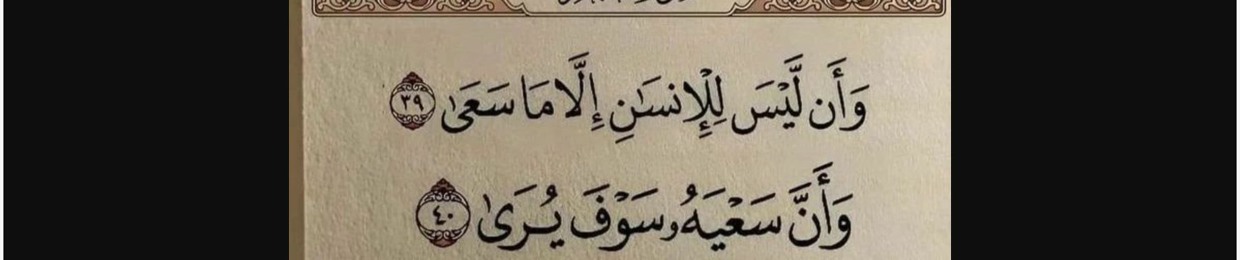 وَأَن لَّيْسَ لِلْإِنسَٰنِ إِلَّا مَا سَعَىٰ ٣٩
وَأَنَّ سَعْيَهُۥ سَوْفَ يُرَىٰ ٤٠